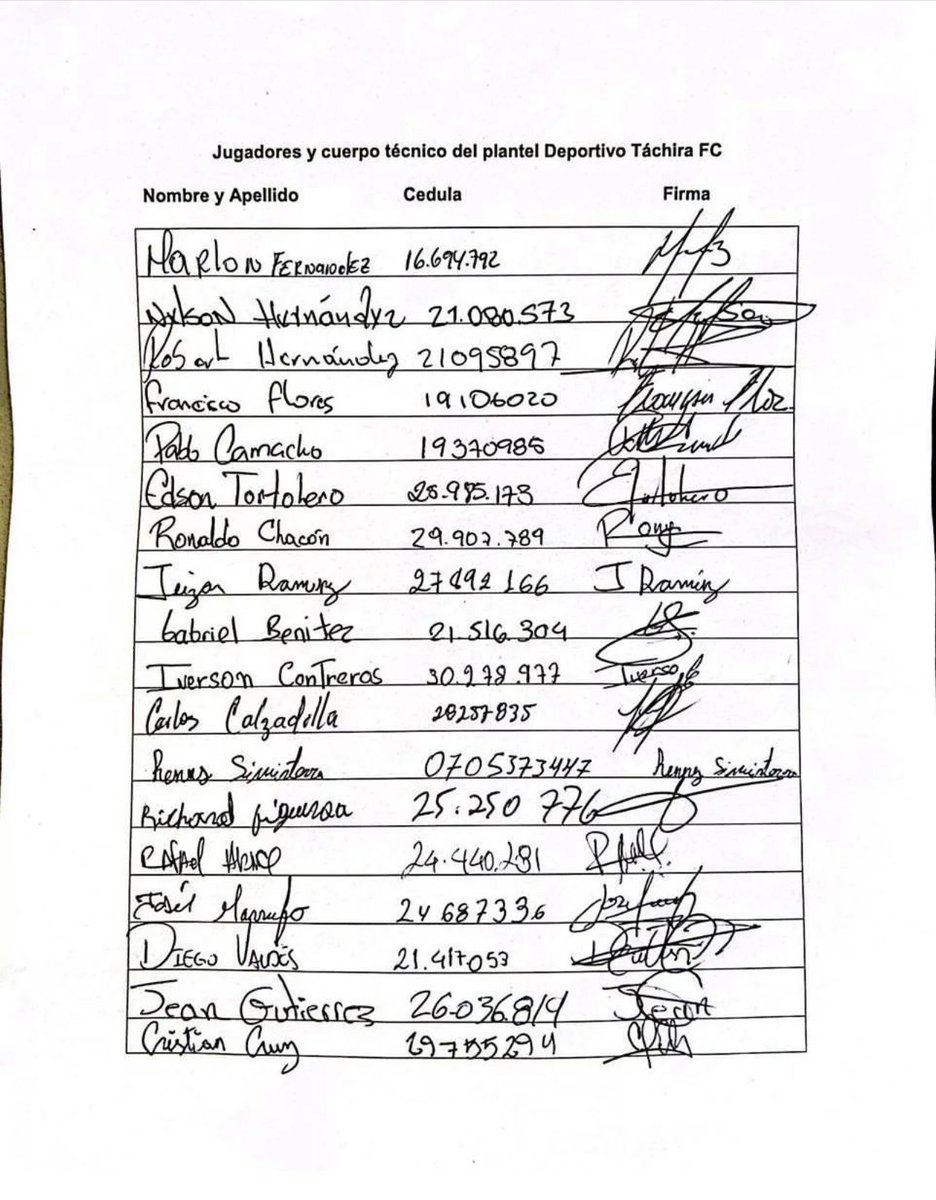 Jugadores y cuerpo técnico del plantel Deportivo Táchira FC
Nombre y Apellido Cedula Firma
Marlon Fernandez 16.694.792
Nykson Hernández 21.080.573
Robert Hernández 21095897
Francisco Flores 19106020
Pablo Camacho 19370985
Edson Tortolero 25.985.173 Tortolero
Ronaldo Chacón 29.907.789 Rony
Ramirez 27492166 J Ramirez
Gabriel Benitez 21.516.304
Iverson Contreras 30.278.977 Iverson
Carlos Calzadilla 28257835
Renny Simisterra 0705373447 Renny Simisterra
Richard figueroa 25.250 776
Rafael 24.440.281
José Marrufo 24687336
Diego Valdés 21.417053
Jean Gutierrez 26.036.814
Cristian Cruz 29755294